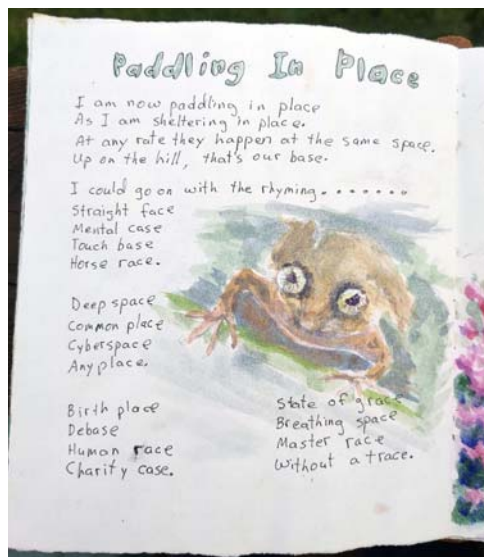 Paddling In Place
I am now paddling in place
As I am sheltering in place.
At any rate they happen at the same space.
Up on the hill, that's our base.
I could go on with the rhyming.......
Straight face
Mental case
Touch base
Horse race.
Deep space
Common place
Cyberspace
Any place.
Birth place
Debase
Human race
Charity case.
State of grace
Breathing space
Master race
Without a trace.